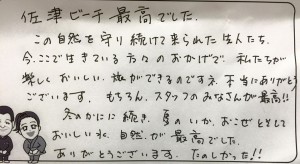 佐津ビーチ最高でした。
この自然を守り続けて来られた先人たち、
今、ここで生きている方々のおかげで、私たちが
楽しくおいしい旅ができるのですネ。本当にありがとう
ございます。もちろん、スタッフのみなさんが最高!!
冬のかにに続き、夏のいか、おこぜ
おいしい水、自然、が最高でした。
ありがとうございます。たのしかった!!